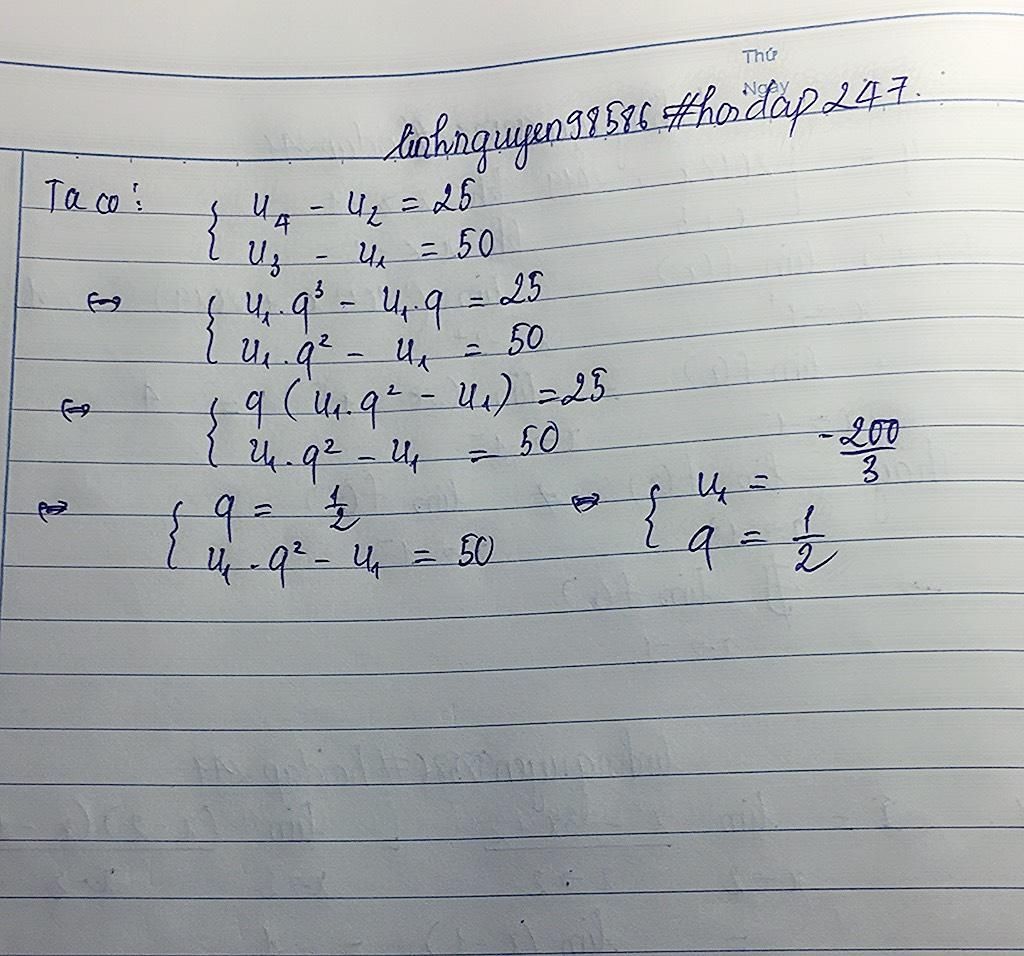 Thứ
Ngày
linhnguyen98586 #hoidap247.
Ta có: { u₄ - u₂ = 25
u₃ - u₁ = 50
⇔ { u₁.q³ - u₁.q = 25
u₁.q² - u₁ = 50
⇔ { q (u₁.q² - u₁) = 25
u₁.q² - u₁ = 50
⇔ { q = 1/2 ⇔ { u₁ = -200/3
u₁.q² - u₁ = 50 q = 1/2